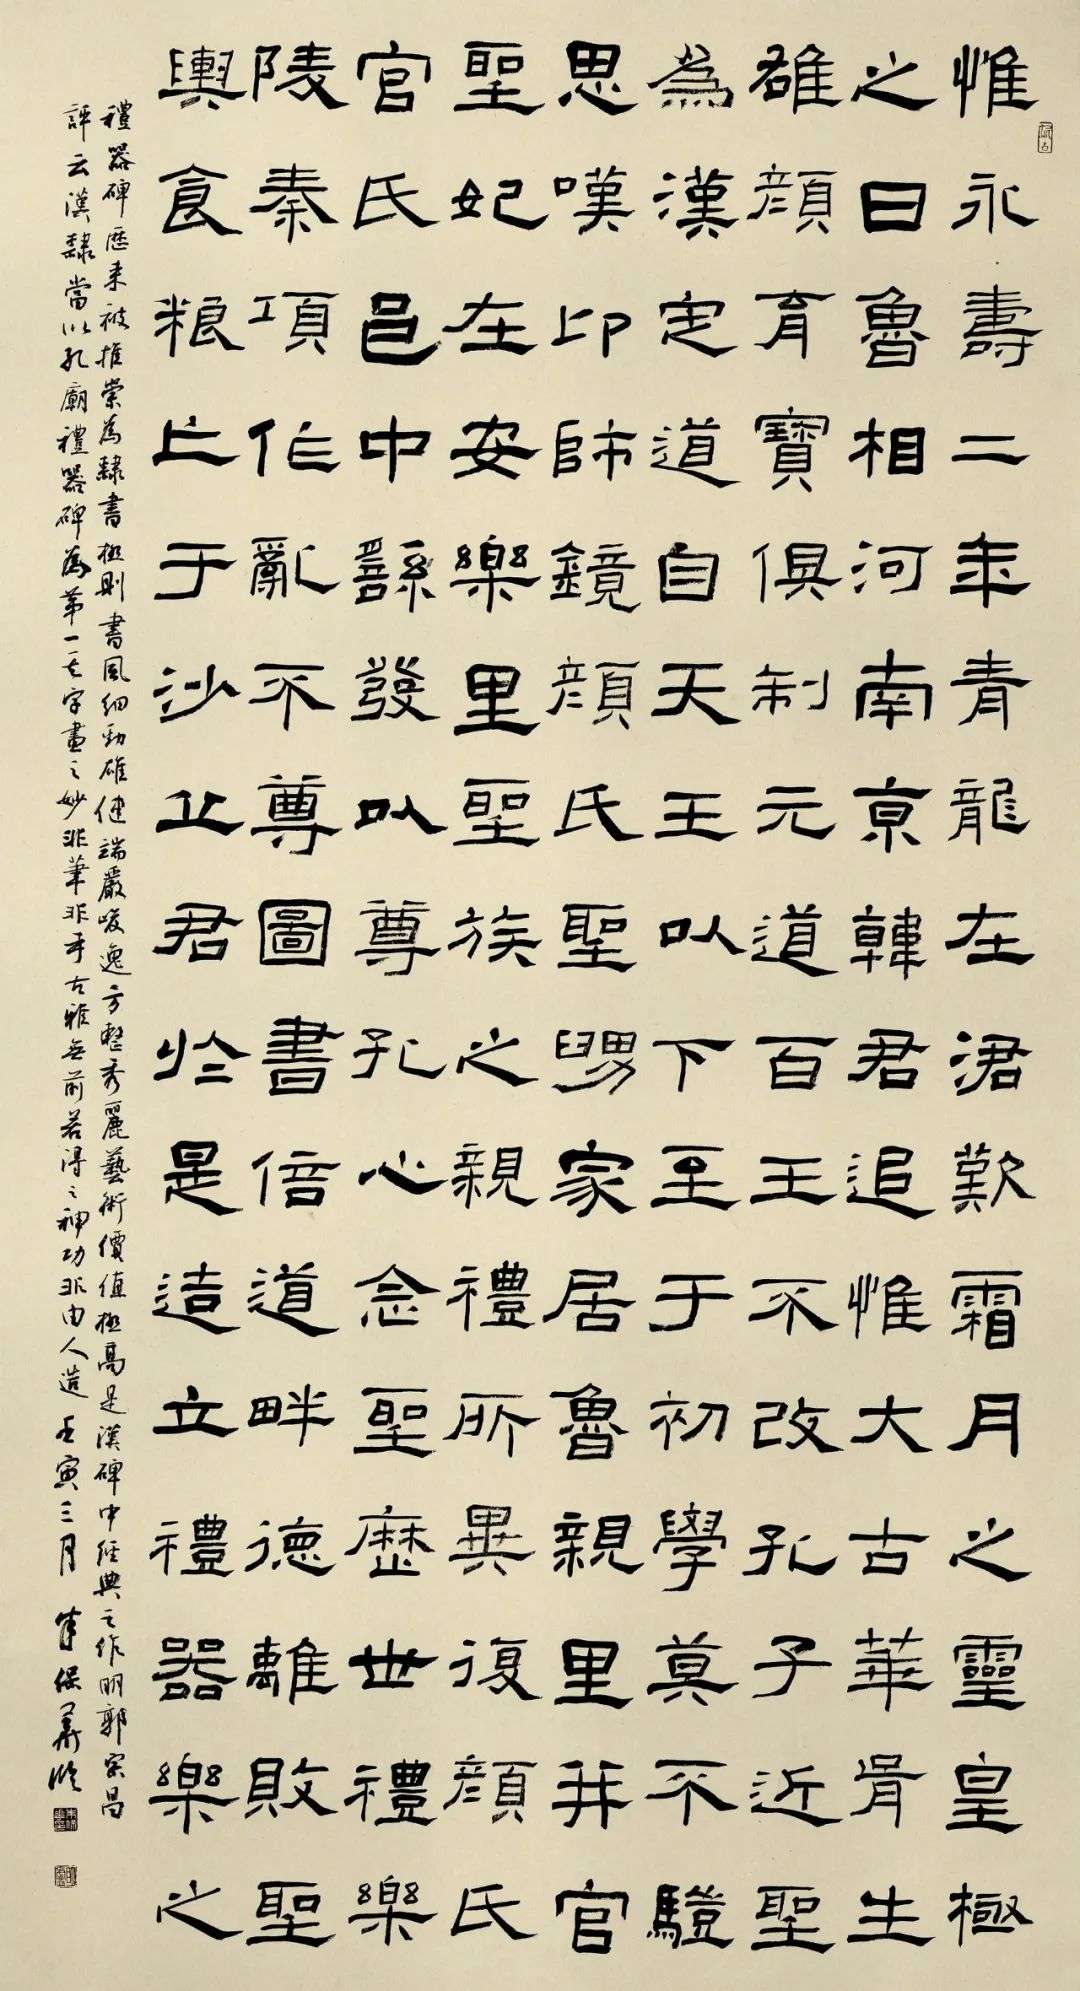 惟永壽二年青龍在涒歎霜月之靈皇極
之日魯相河南京韓君追惟大古華胥生
雄顏育寶俱制元道百王不改孔子近聖
為漢定道自天王以下至于初學莫不驥
思嘆卬師鏡顏氏聖舅家居魯親里并官
聖妃在安樂里聖族之親禮所異復顏氏
官氏邑中繇發以尊孔心念聖歷世禮樂
陵秦項作亂不尊圖書倍道畔德離敗聖
輿食粮亡于沙丘君於是造立禮器樂之
禮器碑歷來被推崇為隸書極則書風細勁雄健端嚴峻逸方整秀麗藝術價值極高是漢碑中經典之作明郭宗昌
評云漢隸當以孔廟禮器碑為第一其字畫之妙非筆非手古雅無前若得之神功非由人造壬寅三月 保華臨